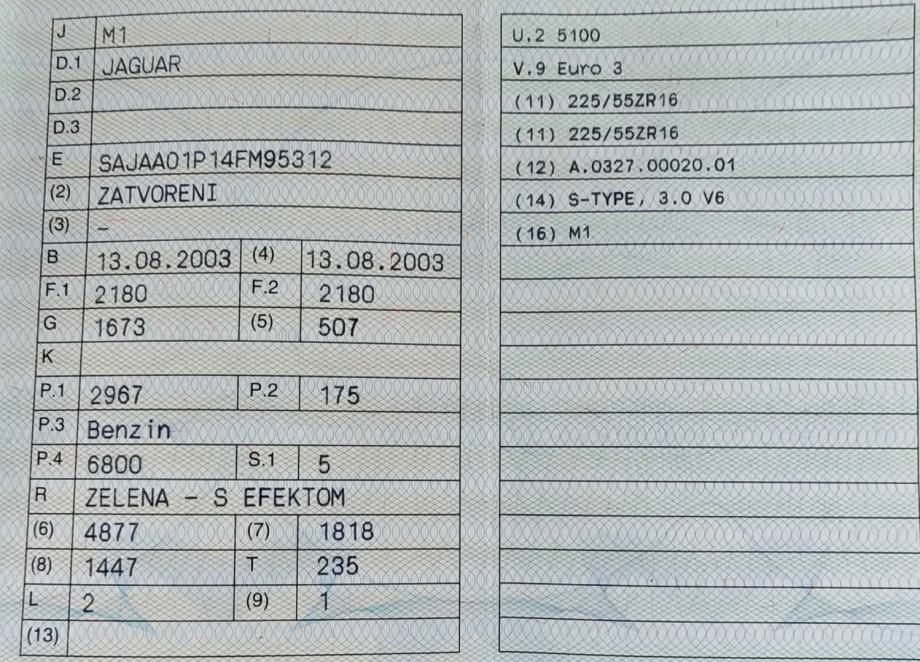 J M1
D.1 JAGUAR
D.2
D.3
E SAJAA01P14FM95312
(2) ZATVORENI
(3) –
B 13.08.2003 (4) 13.08.2003
F.1 2180 F.2 2180
G 1673 (5) 507
K
P.1 2967 P.2 175
P.3 Benzin
P.4 6800 S.1 5
R ZELENA – S EFEKTOM
(6) 4877 (7) 1818
(8) 1447 T 235
L 2 (9) 1
(13)
U.2 5100
V.9 Euro 3
(11) 225/55ZR16
(11) 225/55ZR16
(12) A.0327.00020.01
(14) S-TYPE, 3.0 V6
(16) M1